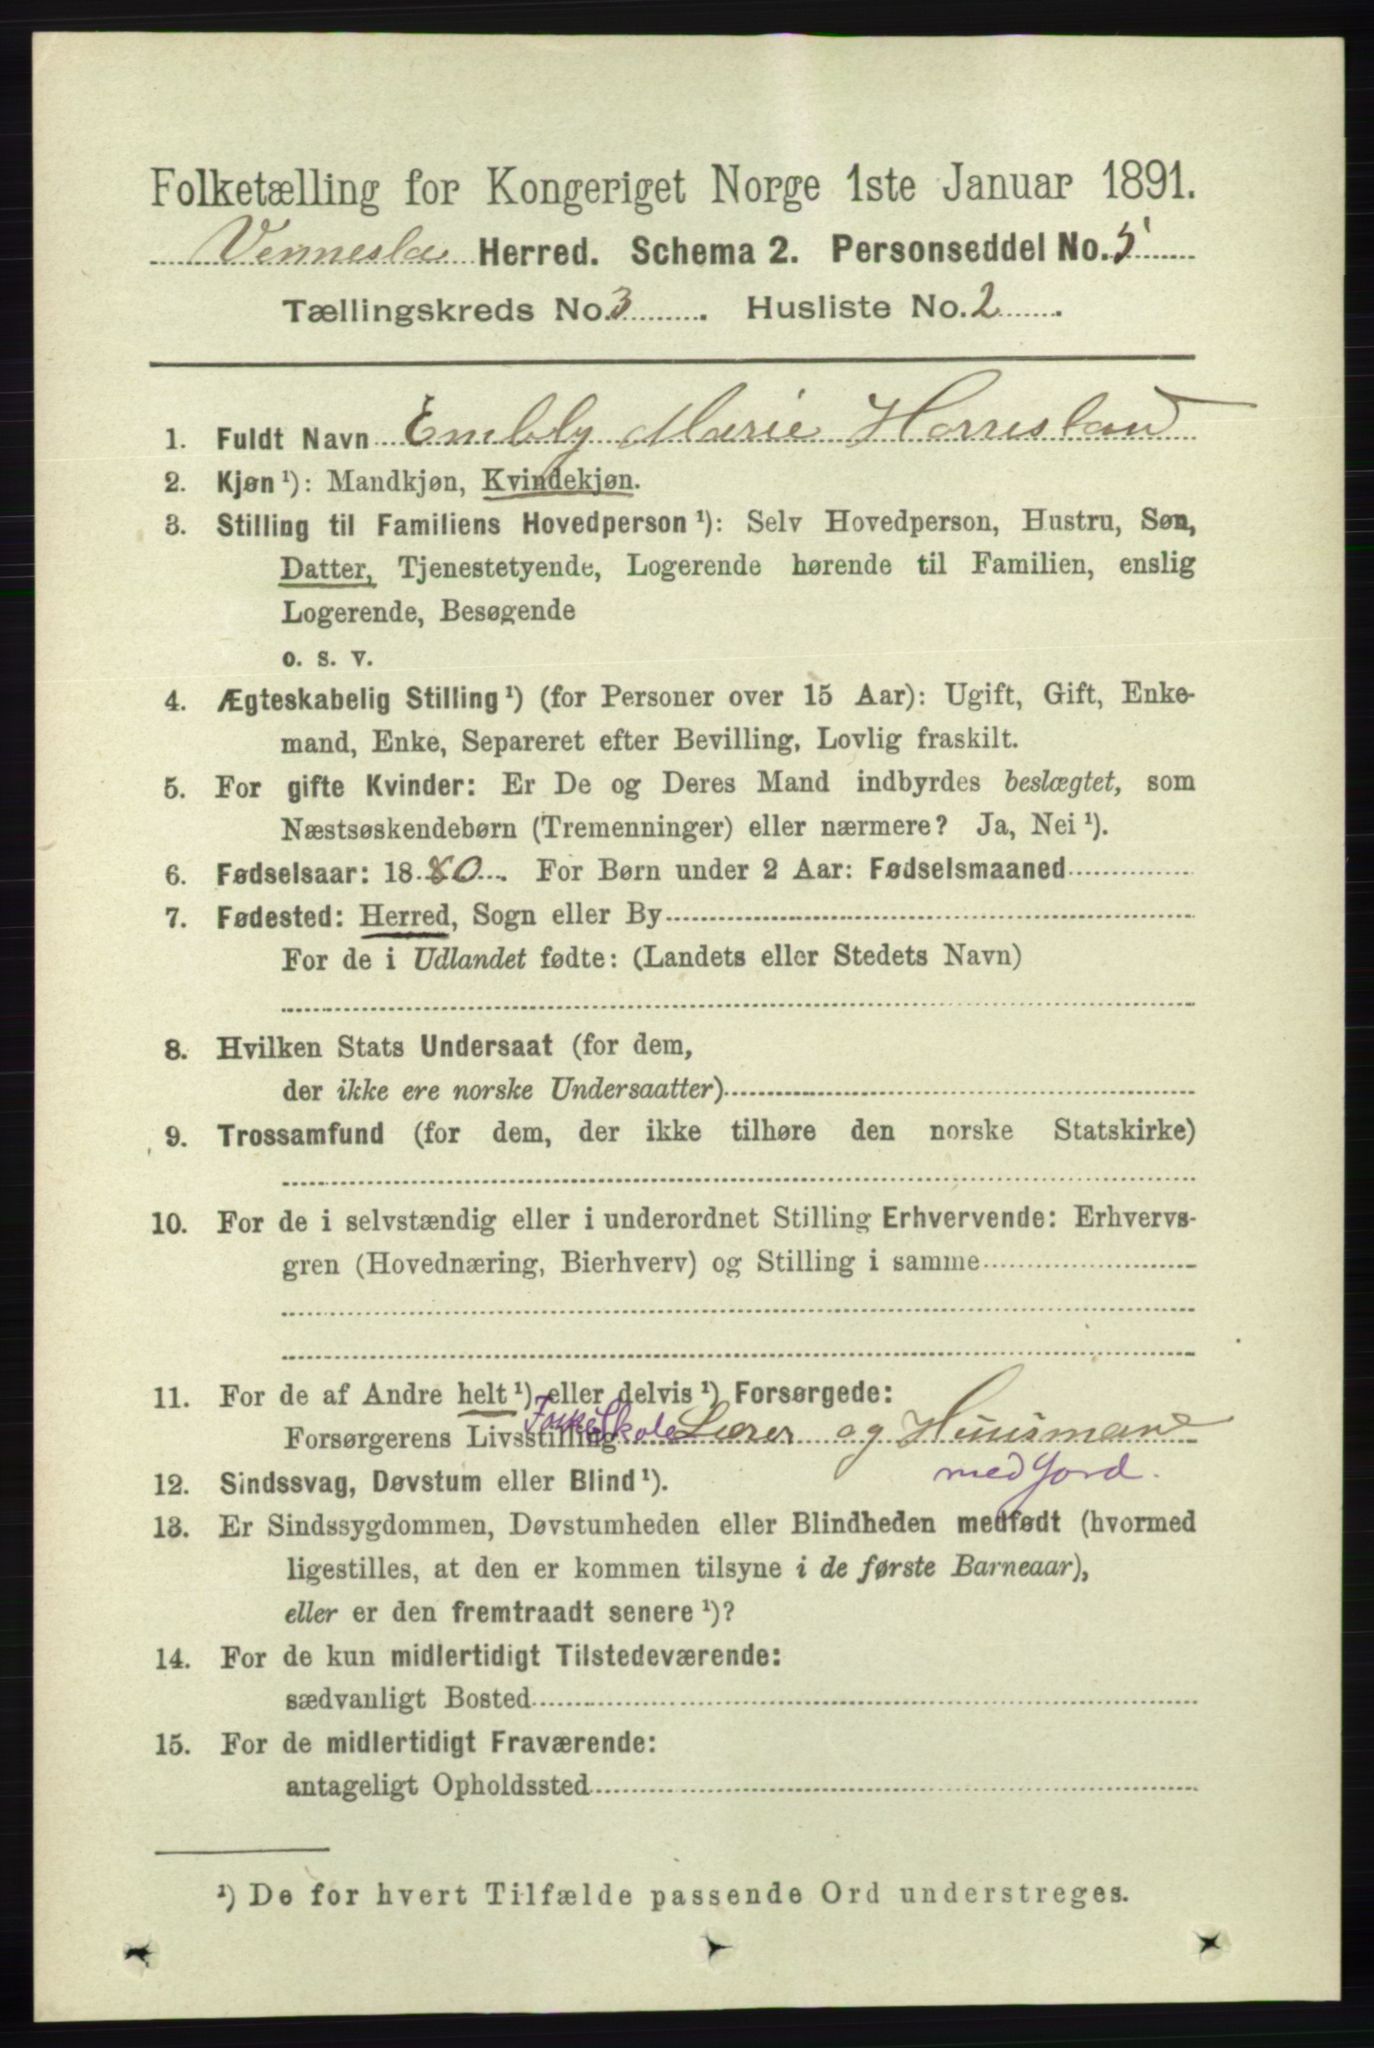 Folketælling for Kongeriget Norge 1ste Januar 1891.
Vennesla Herred. Schema 2. Personseddel No. 5
Tællingskreds No. 3. Husliste No. 2.
1. Fuldt Navn Embly Marie Horrisland
2. Kjøn ¹): Mandkjøn, Kvindekjøn.
3. Stilling til Familiens Hovedperson ¹): Selv Hovedperson, Hustru, Søn,
Datter, Tjenestetyende, Logerende hørende til Familien, enslig
Logerende, Besøgende
o. s. v.
4. Ægteskabelig Stilling ¹) (for Personer over 15 Aar): Ugift, Gift, Enke-
mand, Enke, Separeret efter Bevilling, Lovlig fraskilt.
5. For gifte Kvinder: Er De og Deres Mand indbyrdes beslægtet, som
Næstsøskendebørn (Tremenninger) eller nærmere? Ja, Nei ¹).
6. Fødselsaar: 1880. For Børn under 2 Aar: Fødselsmaaned
7. Fødested: Herred, Sogn eller By
For de i Udlandet fødte: (Landets eller Stedets Navn)
8. Hvilken Stats Undersaat (for dem,
der ikke ere norske Undersaatter)
9. Trossamfund (for dem, der ikke tilhøre den norske Statskirke)
10. For de i selvstændig eller i underordnet Stilling Erhvervende: Erhvervs-
gren (Hovednæring, Bierhverv) og Stilling i samme
11. For de af Andre helt ¹) eller delvis ¹) Forsørgede:
Forsørgerens Livsstilling Skole Lærer og Huusmand
med Jord.
12. Sindssvag, Døvstum eller Blind ¹).
13. Er Sindssygdommen, Døvstumheden eller Blindheden medfødt (hvormed
ligestilles, at den er kommen tilsyne i de første Barneaar),
eller er den fremtraadt senere ¹)?
14. For de kun midlertidigt Tilstedeværende:
sædvanligt Bosted
15. For de midlertidigt Fraværende:
antageligt Opholdssted
¹) De for hvert Tilfælde passende Ord understreges.